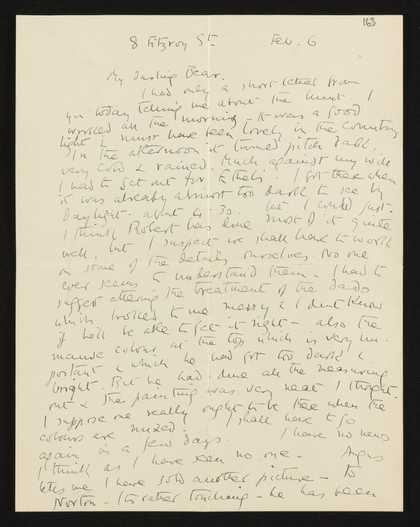 163
8 Fitzroy St. Feb. 6
My Darling Bear.
I had only a short letter from
you today telling me about the hunt. I
worked all the morning - it was a good
light & must have been lovely in the country
In the afternoon it turned pitch dark,
very cold & rained. Much against my will
I had to set out for Ethel's. I got there when
it was already almost too dark to see by
daylight - about 4.30. but I could just.
I think Robert has done most of it quite
well, but I suspect we shall have to work
on some of the details ourselves. No one
ever seems to understand them - I had to
suggest altering the treatment of the dado
which looked to me messy & I dont know
if he'll be able to get it right - also the
mauve colour at the top which is very im-
portant & which he had got too dark &
bright. But he had done all the measuring
out & the painting was very neat I thought.
I suppose one really ought to be there when the
colours are mixed. I shall have to go
again in a few days. I have no news
I think as I have seen no one - Angus
tells me I have sold another picture - to
Norton - Its rather touching - he has been